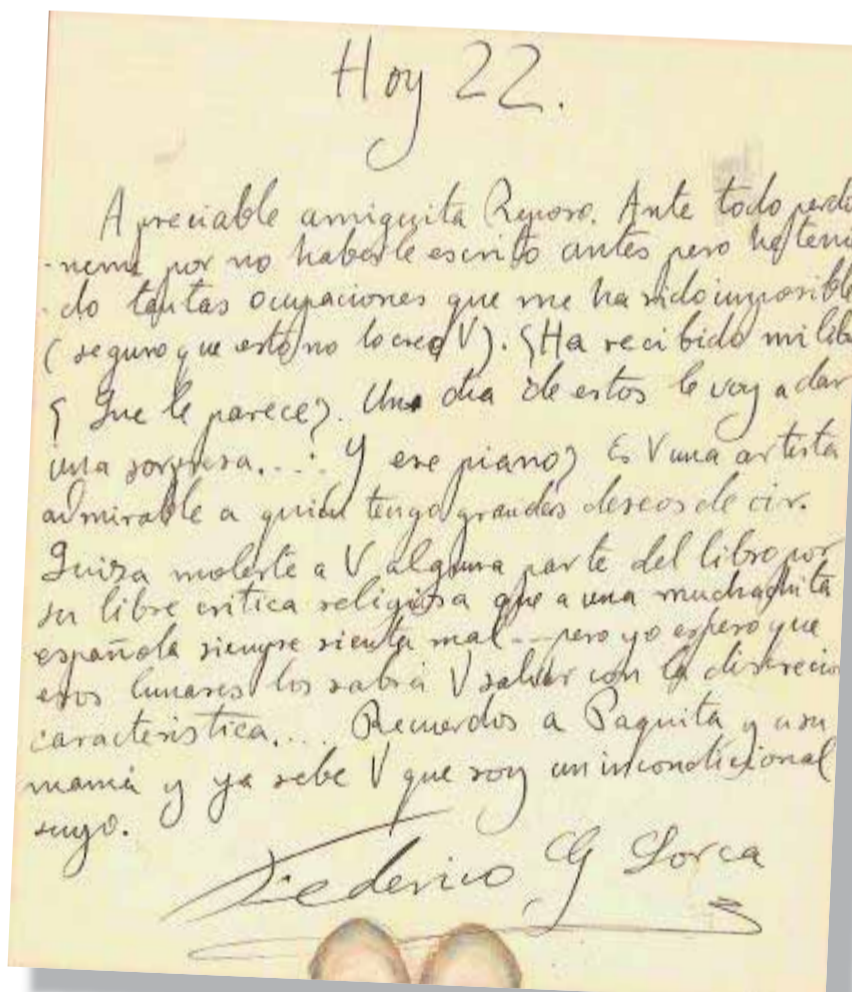 Hoy 22.
Apreciable amiguita Reposo. Ante todo perdo
-neme por no haberle escrito antes pero he teni
-do tantas ocupaciones que me ha sido imposible
( seguro que esto no lo cree V ). ¿Ha recibido mi lib
¿ Que le parece?. Uno dia de estos le voy a dar
una sorpresa.... Y ese piano? Es V una artista
admirable a quien tengo grandes deseos de oir.
Quiza moleste a V alguna parte del libro por
su libre critica religiosa que a una muchachita
española siempre sienta mal... pero yo espero que
esos lunares los sabrá V salvar con la discrecion
caracteristica.... Recuerdos a Paquita y a su
mamá y ya sabe V que soy un incondicional
suyo.
Federico G Lorca